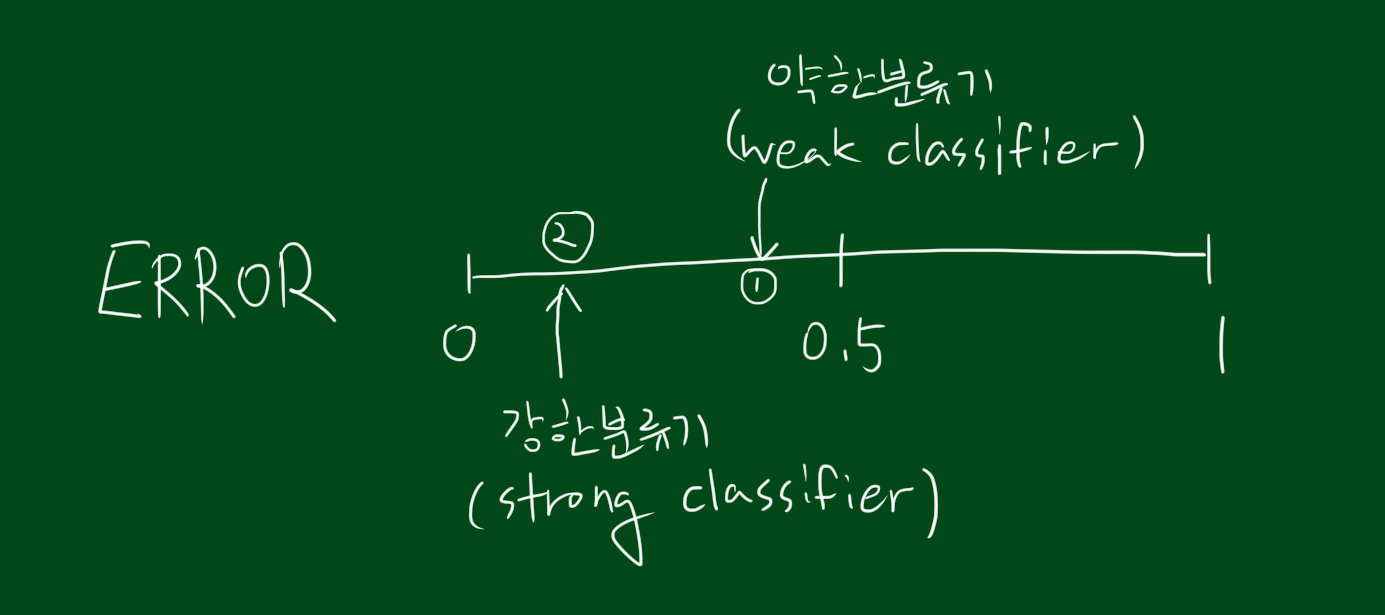 약한분류기
(weak classifier)
②
ERROR
①
0
0.5
1
강한분류기
(strong classifier)